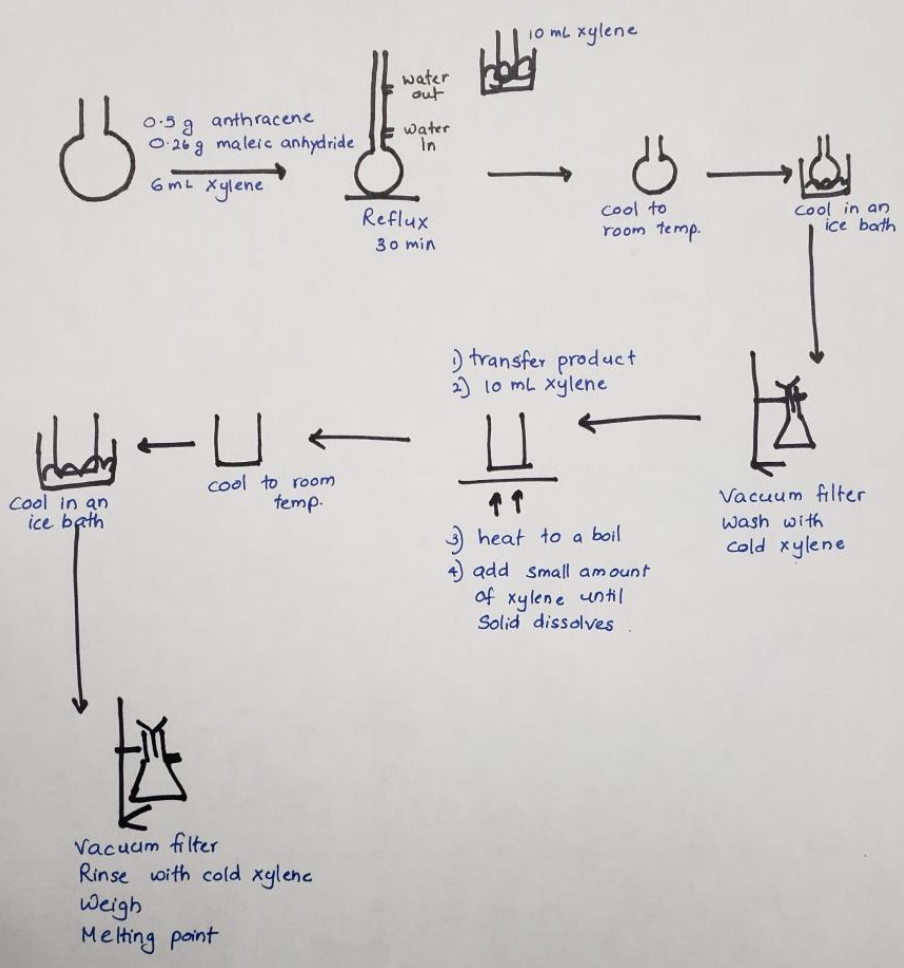 10 mL xylene
0.5 g anthracene
0.26 g maleic anhydride
6 mL xylene
water
out
water
in
Reflux
30 min
cool to
room temp.
cool in an
ice bath
1) transfer product
2) 10 mL xylene
3) heat to a boil
4) add small amount
of xylene until
Solid dissolves.
Vacuum filter
wash with
cold xylene
cool to room
temp.
cool in an
ice bath
Vacuum filter
Rinse with cold xylene
Weigh
Melting point